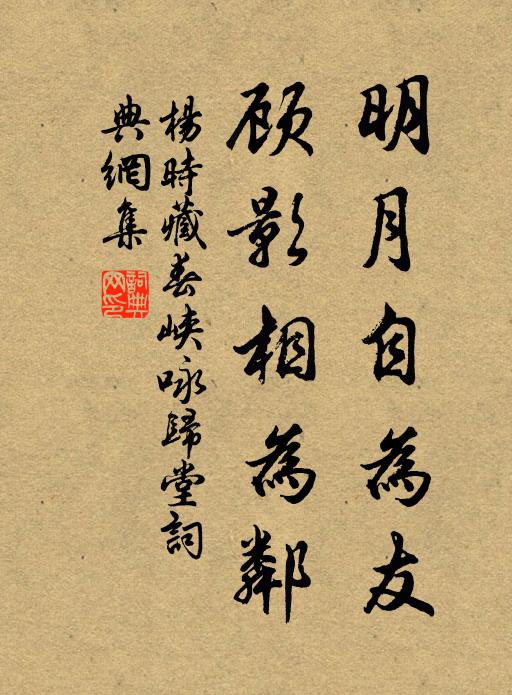 明月自為友
顧影相為鄰
楊時藏春峽咏歸堂詞
典網集
詞典網印